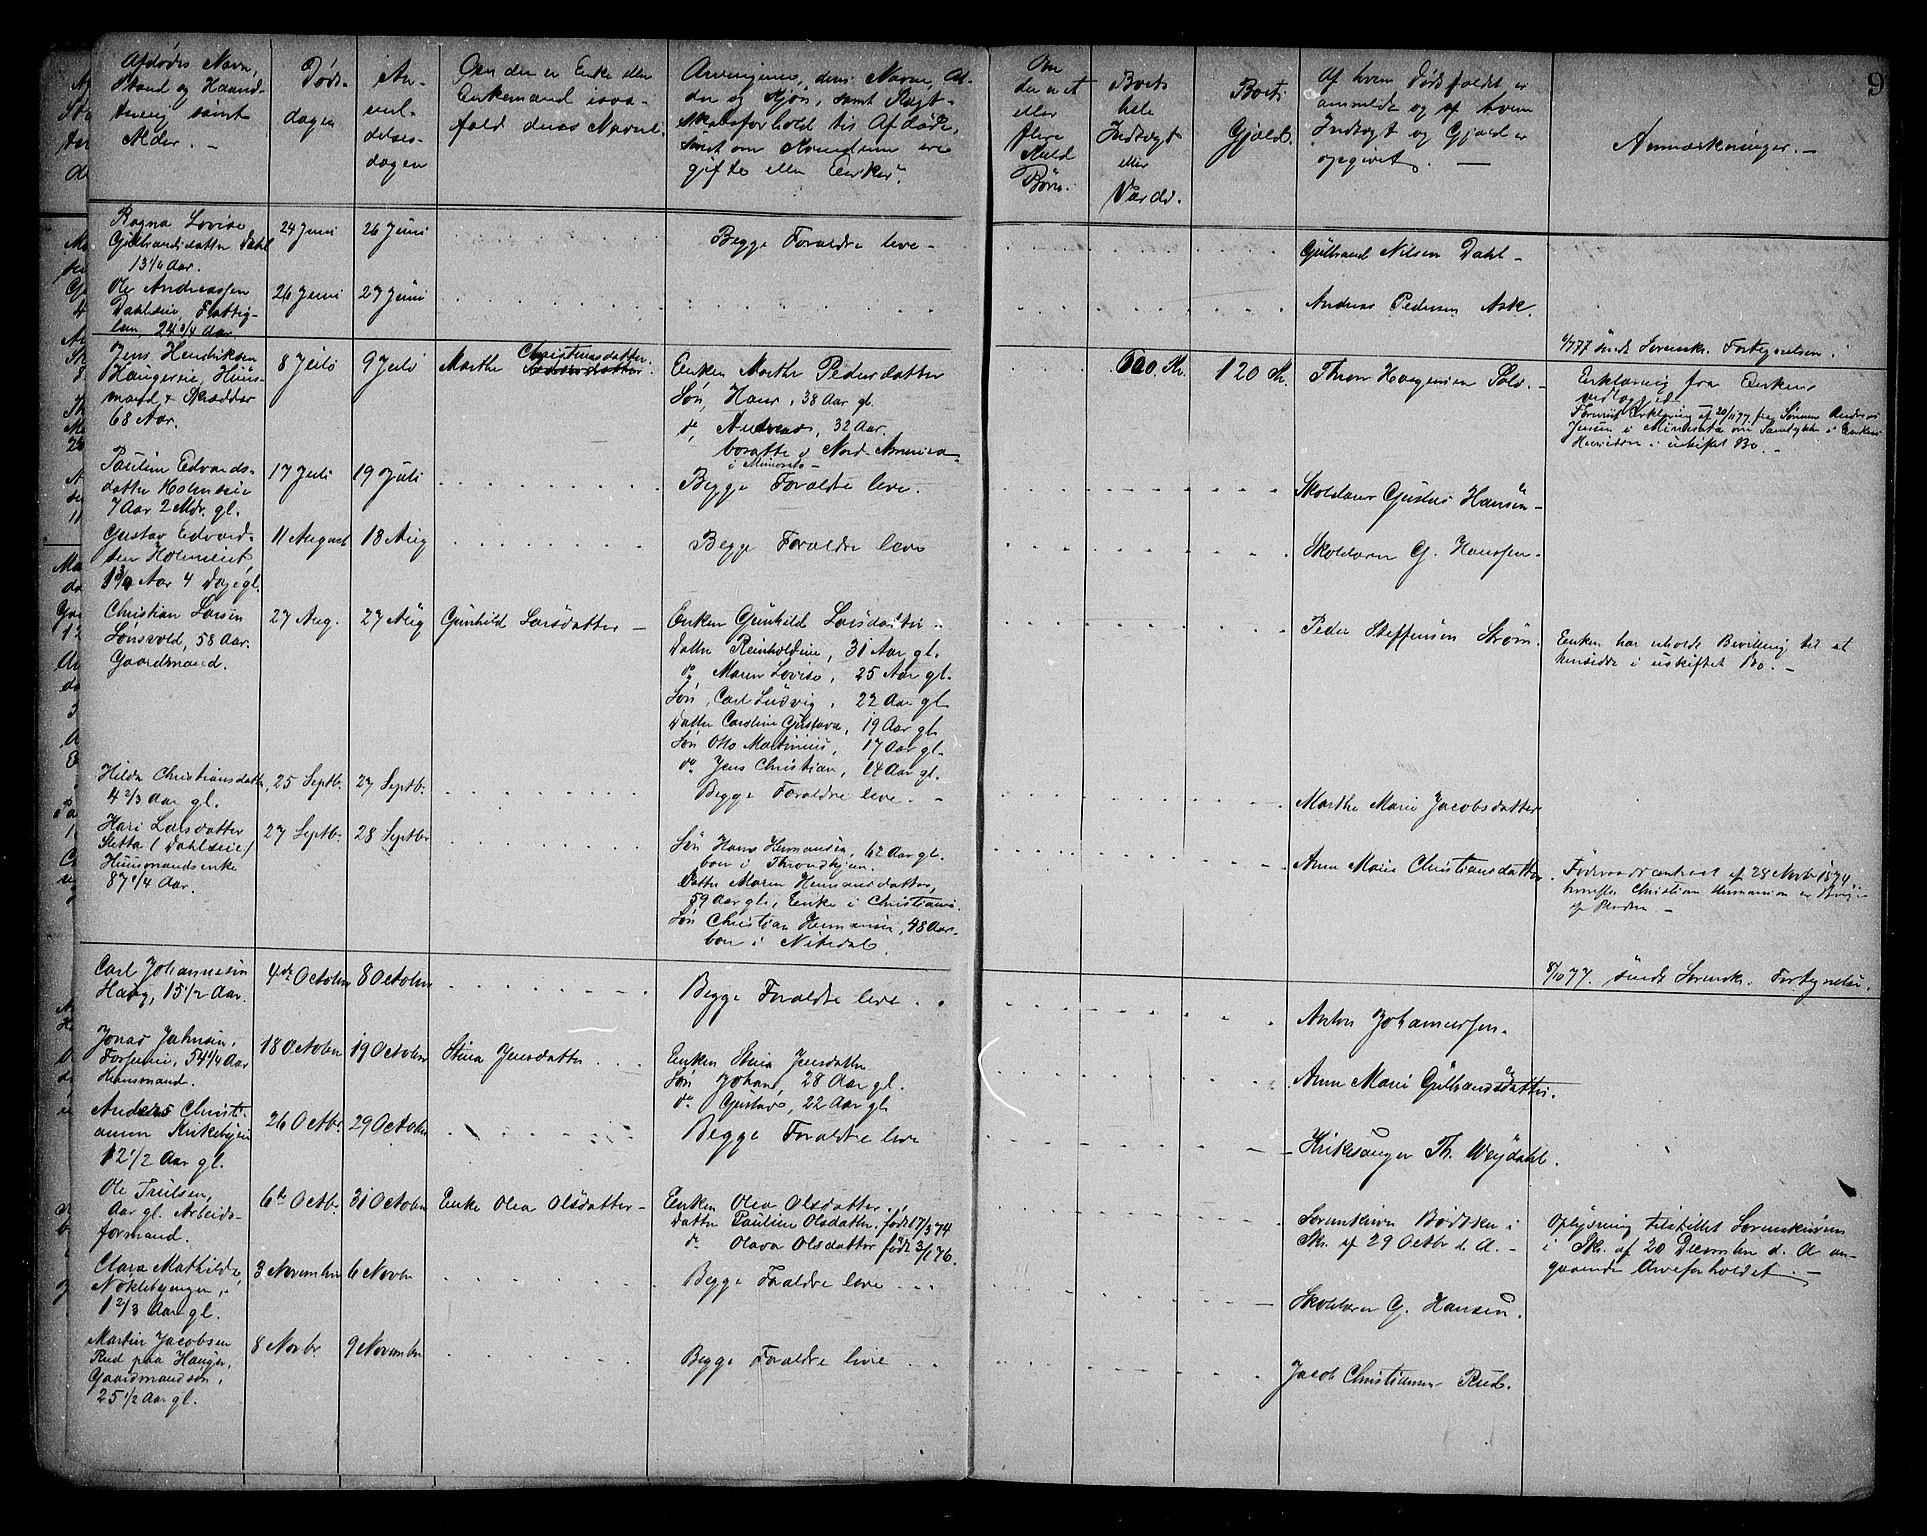 9
Afdødes Navn,
Stand og Haand-
tering samt
Alder. -
Døds-
dagen
An-
mel-
delses-
dagen
Om der er Enke eller
Enkemand isaa-
fald deres Navne.
Arvingerne, deres Navne, Al-
der og Kjøn, samt Slægt-
skabsforhold til Afdøde,
samt om Kvinderne ere
gifte eller Enker.
Om
der er et
eller
flere
Kuld
Børn.
Boets
hele
Indtægt
eller
Værdi.
Boets
Gjæld.
Af hvem Dødsfaldet er
anmeldt og af hvem
Indtægt og Gjæld er
opgivet. -
Anmærkninger. -
Ragna Lovise
Gulbrandsdatter Dahl
13 1/6 Aar.
24 Juni
26 Juni
Begge Forældre leve -
Gulbrand Nilsen Dahl -
Ole Andreassen
Dahlseie, Fattig-
lem, 24 3/4 Aar
26 Juni
27 Juni
Andreas Pedersen Ask.
6/7 77 sendt Sorenskr. Fortegnelsen.
Jens Hendriksen
Haugerseie, Huus-
mand & Skrædder
68 Aar.
8 Juli
9 Juli
Marthe Christensdatter.
Pedersdatter
Enken Marthe Pedersdatter
Søn, Hans, 38 Aar gl.
do, Andreas, 32 Aar.
bosatte i Nord-America
i Minesota -
600 Kr.
120 Kr.
Thron Haagensen
Erklæring fra Enken
vedlagt
Erklæring af 20/11 77 fra Sønnen Andreas
Jensen i Minesota om Samtykke i Enkens
Hensidden i uskiftet Bo. -
Pauline Edvards-
datter Holmseie
7 Aar 2 Mdr. gl.
17 Juli
19 Juli
Begge Forældre leve.
Skolelærer Gustav Hansen -
Gustav Edvard-
sen Holmseiet,
1 3/4 Aar 4 Dage gl.
11 August
18 Aug
Begge Forældre leve
Skolelærer G. Hanssen -
Christian Larsen
Lønsvold, 58 Aar.
Gaardmand.
27 Aug.
27 Aug
Gunhild Larsdatter -
Enken Gunhild Larsdatter -
Datter Reinholdine, 31 Aar gl.
do Maren Lovise, 25 Aar gl.
Søn, Carl Ludvig, 22 Aar gl.
Datter Caroline Gustava, 19 Aar gl.
Søn Otto Martinius, 17 Aar gl.
do Jens Christian, 14 Aar gl.
Peder Steffensen Strøm.
Enken har erholdt Bevilling til at
hensidde i uskiftet Bo. -
Hilda Christiansdatter,
4 2/3 Aar gl.
25 Septbr.
27 Septbr.
Begge Forældre leve. -
Marthe Marie Jacobsdatter
Kari Larsdatter
Sletta (Dahlseie)
Huusmandsenke
87 1/4 Aar.
27 Septbr.
28 Septbr
Søn Hans Hermansen, 62 Aar gl.
boer i Throndhjem.
Datter Maren Hermansdatter,
59 Aar gl., Enke i Christiania.
Søn Christian Hermansen, 48 Aar.
boer i Nitedal.
Anne Marie Christiansdatter.
Føderaadscontract af 28 Novb 1874
hvorefter Christian Hermansen er
af Pladsen. -
8/10 77. sendt Sorenskr. Fortegnelse.
Carl Johannesen
Haug, 15 1/2 Aar.
4de October
8 October
Begge Forældre leve.
Anton Johannessen.
Jonas Johnsen,
54 1/4 Aar
Huusmand.
18 October
19 October
Stina Jensdatter
Enken Stina Jensdatter
Søn Johan, 28 Aar gl.
do Gustav, 22 Aar gl.
Anne Marie Gulbrandsdatter.
Anders Christi-
ansen Kirkebyeie
12 1/2 Aar gl.
26 Octbr.
29 October
Begge Forældre leve
Kirkesanger Th. Weydahl.
Ole Trulsen,
Aar gl. Arbeids-
formand.
6te Octbr.
31 October
Enke Olea Olsdatter -
Enken Olea Olsdatter.
datter Pauline Olsdatter, født 17/3 74
do Olava Olsdatter født 3/1 76.
Sorenskriver Bødtker i
Skr. af 29 Octbr d. A. -
Oplysning tilstillet Sorenskriveren
i Skr. af 20 December d. A an-
gaaende Arveforholdet. -
Clara Mathilde
Noklebyengen,
1 2/3 Aar gl.
3 November
6 Novbr
Begge Forældre leve
Skolelærer G. Hansen.
Martin Jacobsen
Rud paa Hauger,
Gaardmandssøn,
25 1/2 Aar gl.
8 Novbr.
9 November
Begge Forældre leve
Jacob Christiansen Rud.